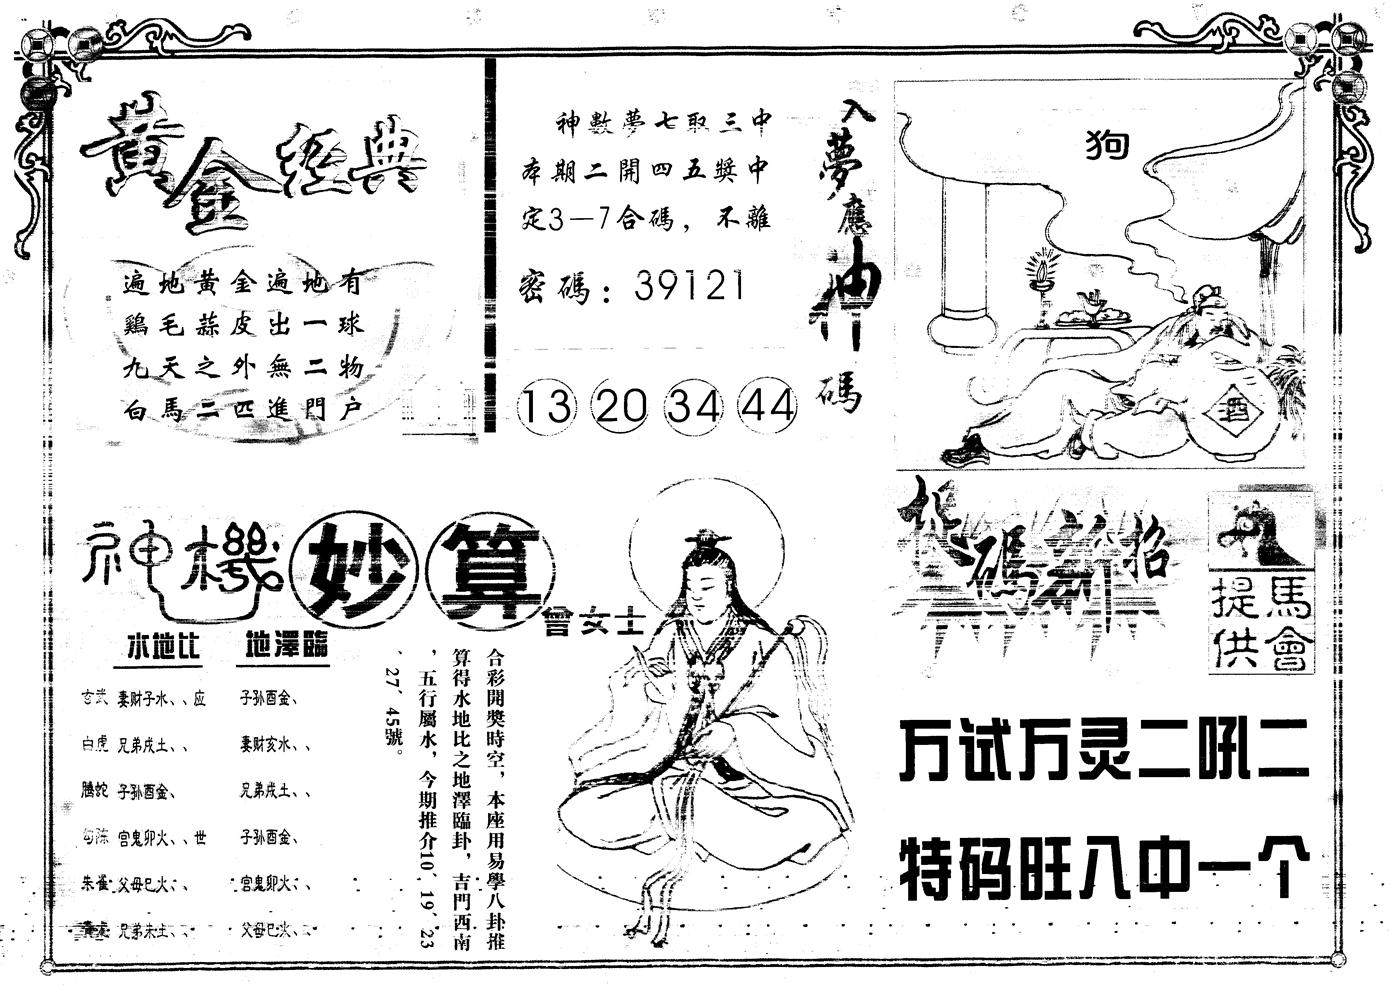 黃金經典
遍地黄金遍地有
鷄毛蒜皮出一球
九天之外無二物
白馬二匹進門户
神數夢七取三中
本期二開四五獎中
定3—7合碼，不離
密碼：39121
13 20 34 44
入夢應神碼
狗
酒
神機妙算
曾女士
水地比
地澤臨
玄武 妻财子水、、应 子孙酉金、
白虎 兄弟戌土、、 妻财亥水、、
騰蛇 子孙酉金、 兄弟戌土、、
勾陈 官鬼卯火、、世 子孙酉金、
朱雀 父母巳火、、 官鬼卯火、、
兄弟未土、、 父母巳火、、
合彩開獎時空，本座用易學八卦推
算得水地比之地澤臨卦，吉門西南
，五行屬水，今期推介10、19、23
、27、45號。
碼新招
馬會提供
万试万灵二吼二
特码旺八中一个